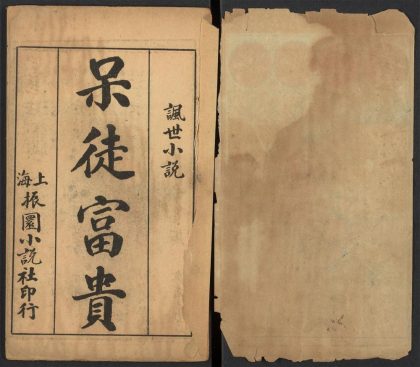 諷世小說
呆徒富貴
上海振圜小說社印行